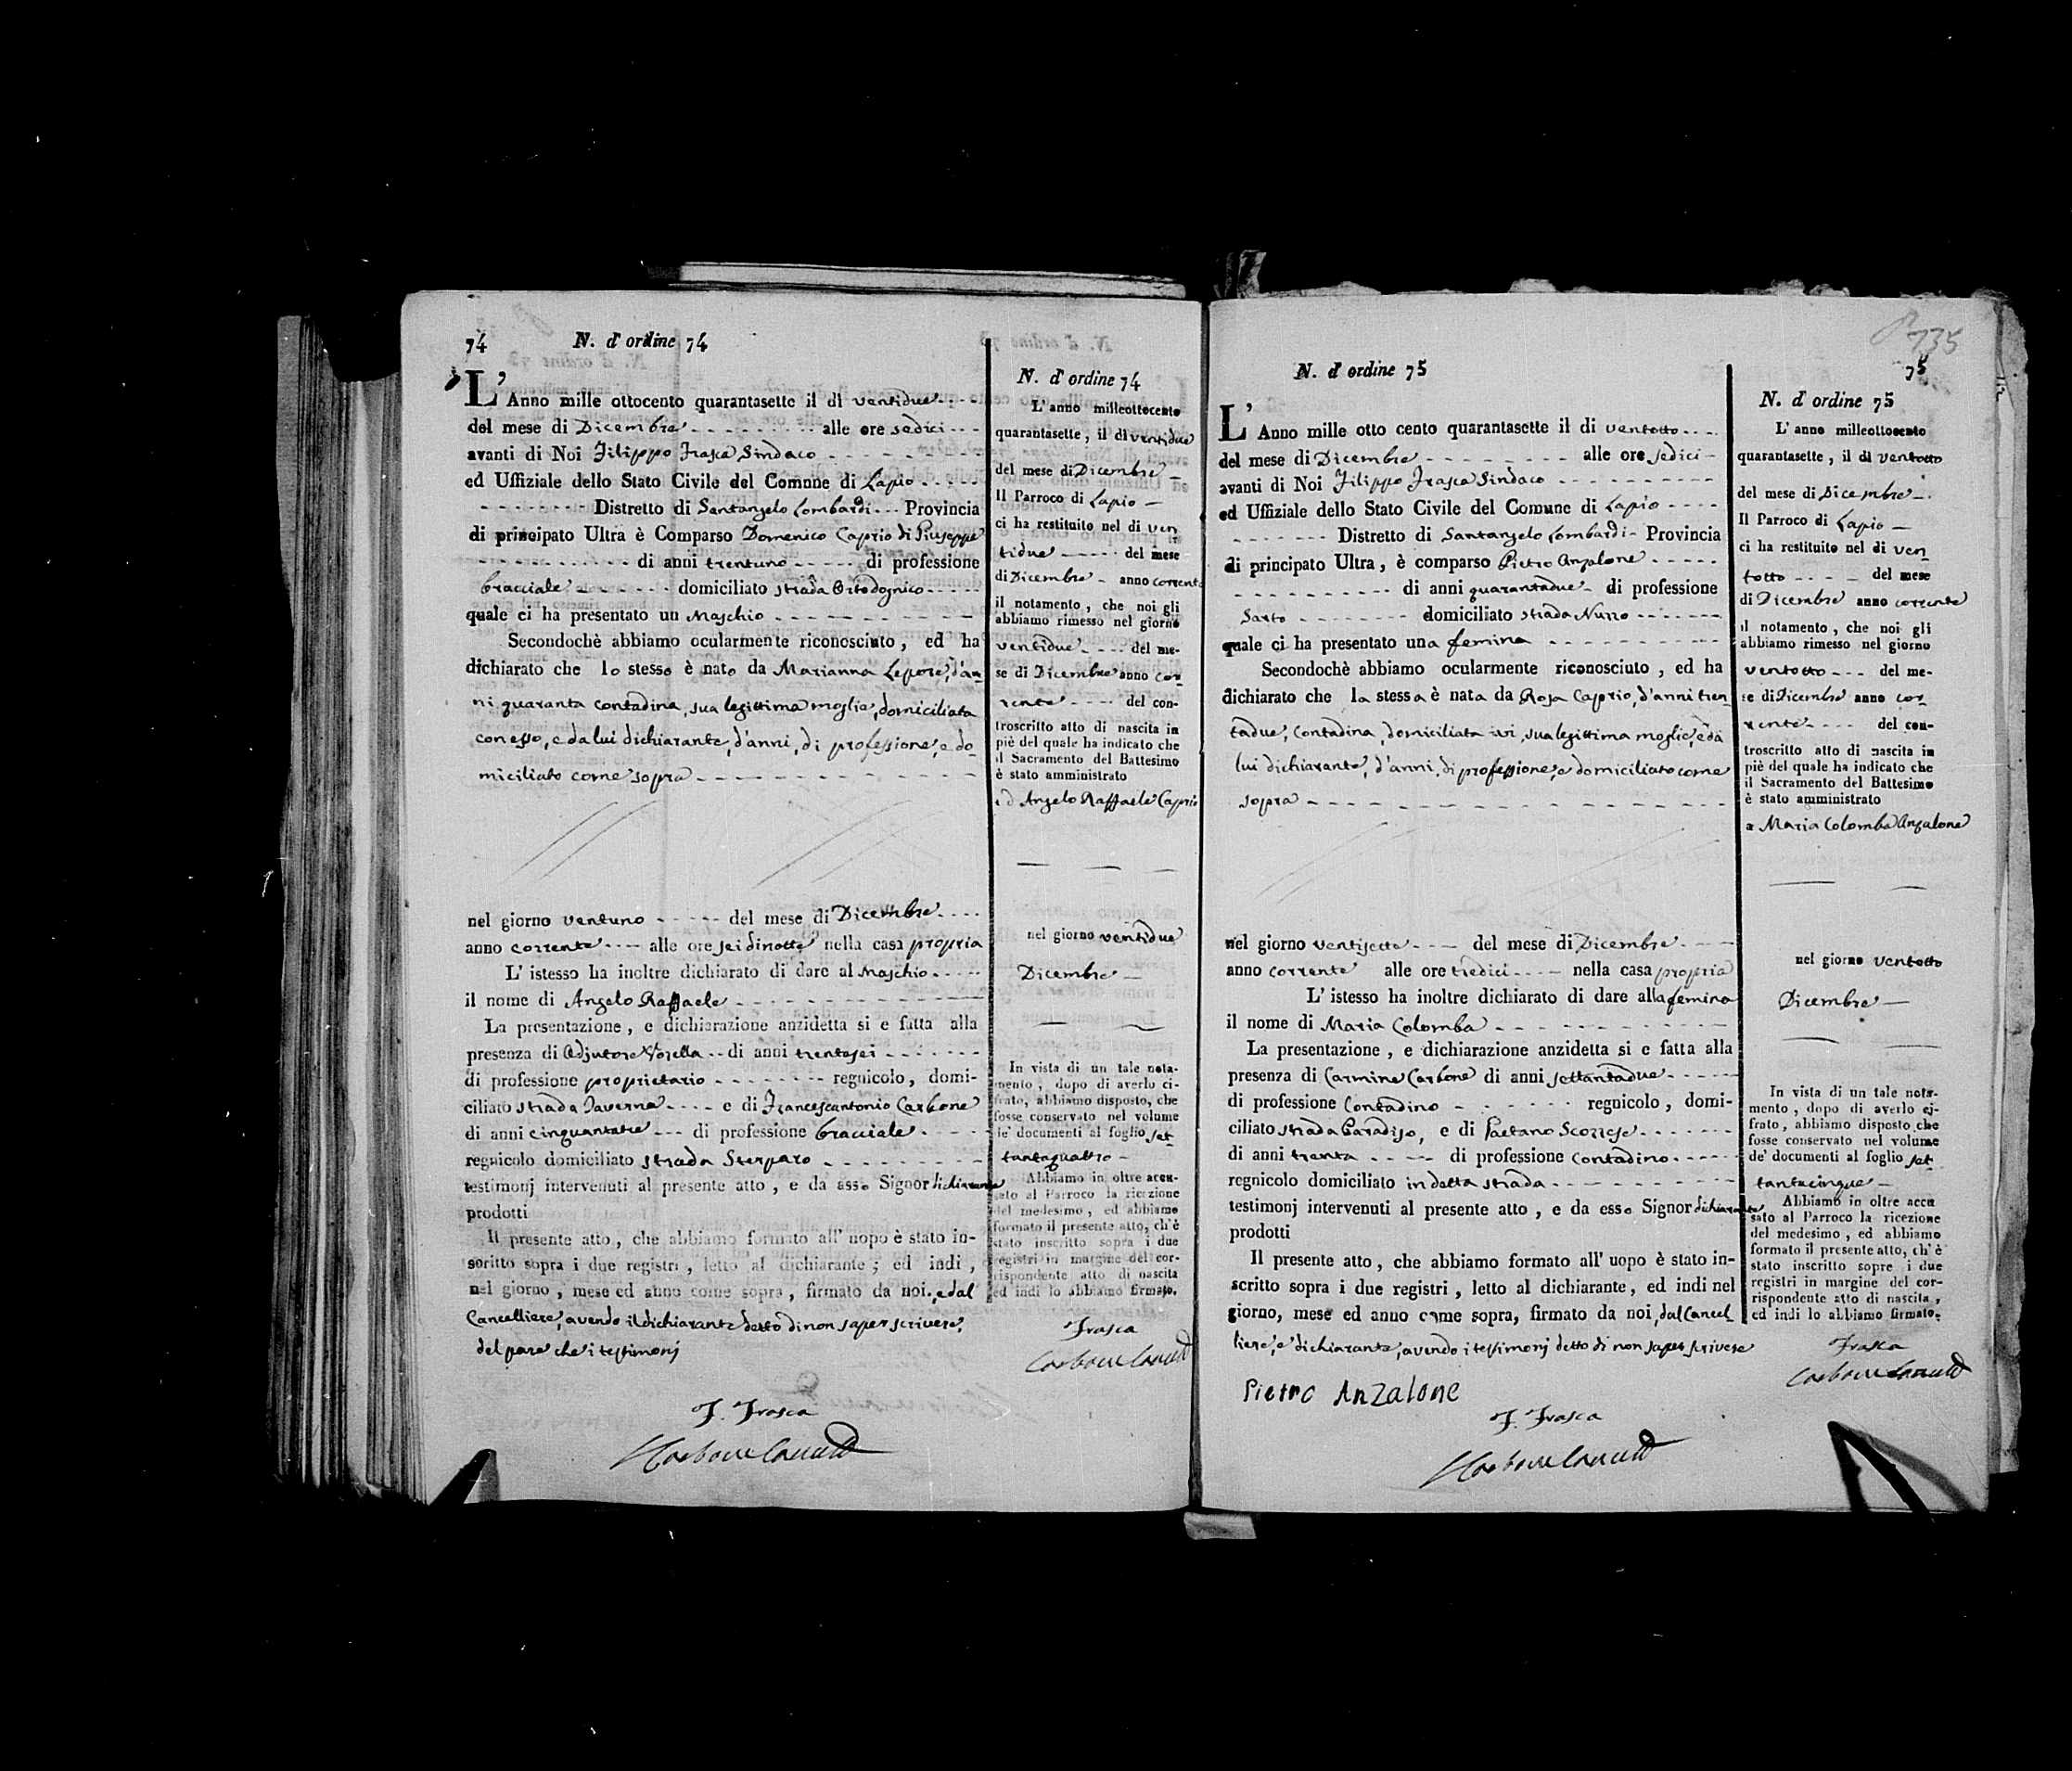 74
N. d'ordine 74
L'Anno mille ottocento quarantasette il dì ventidue
del mese di Dicembre alle ore sedici
avanti di Noi Filippo Frasca Sindaco
ed Uffiziale dello Stato Civile del Comune di Lapio
Distretto di Santangelo Lombardi Provincia
di principato Ultra è Comparso Domenico Caprio di Giuseppe
di anni trentuno di professione
bracciale domiciliato strada Ortodognico
quale ci ha presentato un Maschio
Secondochè abbiamo ocularmente riconosciuto, ed ha
dichiarato che lo stesso è nato da Marianna Lepore, d'an-
ni quaranta contadina, sua legittima moglie, domiciliata
con esso, e da lui dichiarante, d'anni, di professione, e do-
miciliato come sopra
nel giorno ventuno del mese di Dicembre
anno corrente alle ore sei di notte nella casa propria
L'istesso ha inoltre dichiarato di dare al Maschio
il nome di Angelo Raffaele
La presentazione, e dichiarazione anzidetta si e fatta alla
presenza di Adjutore di anni trentasei
di professione proprietario regnicolo, domi-
ciliato strada Taverna e di Francescantonio Carbone
di anni cinquantatre di professione bracciale
regnicolo domiciliato strada Sterparo
testimonj intervenuti al presente atto, e da esso Signor dichiarante
prodotti
Il presente atto, che abbiamo formato all'uopo è stato in-
scritto sopra i due registri, letto al dichiarante; ed indi,
nel giorno, mese ed anno come sopra, firmato da noi, e dal
Cancelliere, avendo il dichiarante detto di non saper scrivere,
del pare che i testimonj
F. Frasca
Carbone
N. d'ordine 74
L'anno milleottocento
quarantasette, il dì ventidue
del mese di Dicembre
Il Parroco di Lapio
ci ha restituito nel dì ven
tidue del mese
di Dicembre anno corrente
il notamento, che noi gli
abbiamo rimesso nel giorno
ventidue del me-
se di Dicembre anno cor-
rente del con-
troscritto atto di nascita in
piè del quale ha indicato che
il Sacramento del Battesimo
è stato amministrato
ad Angelo Raffaele Caprio
nel giorno ventidue
Dicembre
In vista di un tale nota-
mento, dopo di averlo ci-
frato, abbiamo disposto, che
fosse conservato nel volume
de' documenti al foglio set-
tantaquattro
Abbiamo in oltre accu-
sato al Parroco la ricezione
del medesimo, ed abbiamo
formato il presente atto, ch'è
stato inscritto sopra i due
registri in margine del cor-
rispondente atto di nascita
ed indi lo abbiamo firmato.
Frasca
Carbone
735
75
N. d'ordine 75
L'Anno mille otto cento quarantasette il di ventotto
del mese di Dicembre alle ore sedici
avanti di Noi Filippo Frasca Sindaco
ed Uffiziale dello Stato Civile del Comune di Lapio
Distretto di Santangelo Lombardi Provincia
di principato Ultra, è comparso Pietro Anzalone
di anni quarantadue di professione
Sarto domiciliato strada Nuzzo
quale ci ha presentato una femina
Secondochè abbiamo ocularmente riconosciuto, ed ha
dichiarato che la stessa è nata da Rosa Caprio, d'anni tren-
tadue, contadina, domiciliata ivi, sua legittima moglie, e da
lui dichiarante, d'anni, di professione, e domiciliato come
sopra
nel giorno ventisette del mese di Dicembre
anno corrente alle ore tredici nella casa propria
L'istesso ha inoltre dichiarato di dare alla femina
il nome di Maria Colomba
La presentazione, e dichiarazione anzidetta si e fatta alla
presenza di Carmine Carbone di anni settantadue
di professione Contadino regnicolo, domi-
ciliato strada Paradiso, e di Gaetano Scorzese
di anni trenta di professione contadino
regnicolo domiciliato in detta strada
testimonj intervenuti al presente atto, e da esso Signor dichiarante
prodotti
Il presente atto, che abbiamo formato all'uopo è stato in-
scritto sopra i due registri, letto al dichiarante, ed indi nel
giorno, mese ed anno come sopra, firmato da noi, dal Cancel
liere, e dichiarante, avendo i testimonj detto di non saper scrivere
Pietro Anzalone
F. Frasca
Carbone
N. d'ordine 75
L'anno milleottocento
quarantasette, il dì ventotto
del mese di Dicembre
Il Parroco di Lapio
ci ha restituito nel dì ven
totto del mese
di Dicembre anno corrente
il notamento, che noi gli
abbiamo rimesso nel giorno
ventotto del me-
se di Dicembre anno cor-
rente del con-
troscritto atto di nascita in
piè del quale ha indicato che
il Sacramento del Battesimo
è stato amministrato
a Maria Colomba Anzalone
nel giorno ventotto
Dicembre
In vista di un tale nota-
mento, dopo di averlo ci-
frato, abbiamo disposto che
fosse conservato nel volume
de' documenti al foglio set-
tantacinque
Abbiamo in oltre accu
sato al Parroco la ricezione
del medesimo, ed abbiamo
formato il presente atto, ch'è
stato inscritto sopre i due
registri in margine del cor-
rispondente atto di nascita,
ed indi lo abbiamo firmato.
Frasca
Carbone